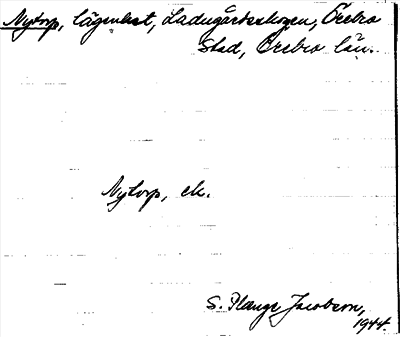 Nytorp, lägenhet, Ladugårdsskogen, Örebro
Stad, Örebro län.
Nytorp, ek.
S. Plange Jacobson,
1944.